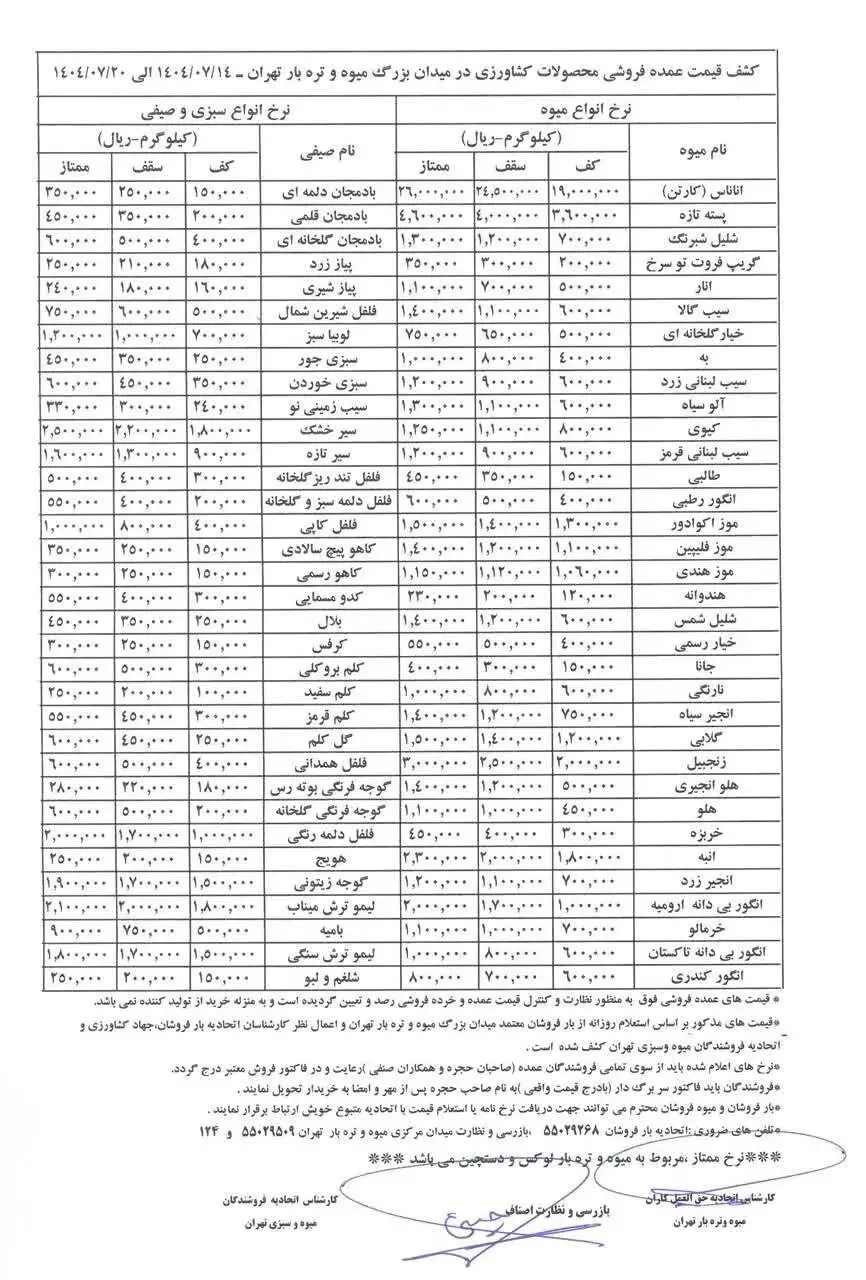 کشف قیمت عمده فروشی محصولات کشاورزی در میدان بزرگ میوه و تره بار تهران ــ ۱٤۰٤/۰۷/۱٤ الی ۱٤۰٤/۰۷/۲۰
نرخ انواع میوه نرخ انواع سبزی و صیفی
نام میوه (کیلوگرم-ریال) نام صیفی (کیلوگرم-ریال)
کف سقف ممتاز کف سقف ممتاز
اناناس (کارتن) ۱۹,۰۰۰,۰۰۰ ۲٤,۵۰۰,۰۰۰ ۲٦,۰۰۰,۰۰۰ بادمجان دلمه ای ۱۵۰,۰۰۰ ۲۵۰,۰۰۰ ۳۵۰,۰۰۰
پسته تازه ۳,٦۰۰,۰۰۰ ٤,۰۰۰,۰۰۰ ٤,٦۰۰,۰۰۰ بادمجان قلمی ۲۰۰,۰۰۰ ۳۵۰,۰۰۰ ٤۵۰,۰۰۰
شلیل شبرنگ ۷۰۰,۰۰۰ ۱,۲۰۰,۰۰۰ ۱,۳۰۰,۰۰۰ بادمجان گلخانه ای ٤۰۰,۰۰۰ ۵۰۰,۰۰۰ ٦۰۰,۰۰۰
گریپ فروت تو سرخ ۲۰۰,۰۰۰ ۳۰۰,۰۰۰ ۳۵۰,۰۰۰ پیاز زرد ۱۸۰,۰۰۰ ۲۱۰,۰۰۰ ۲۵۰,۰۰۰
انار ۵۰۰,۰۰۰ ۷۰۰,۰۰۰ ۱,۱۰۰,۰۰۰ پیاز شیری ۱٦۰,۰۰۰ ۱۸۰,۰۰۰ ۲٤۰,۰۰۰
سیب گالا ٦۰۰,۰۰۰ ۱,۱۰۰,۰۰۰ ۱,٤۰۰,۰۰۰ فلفل شیرین شمال ۵۰۰,۰۰۰ ٦۰۰,۰۰۰ ۷۵۰,۰۰۰
خیار گلخانه ای ۵۰۰,۰۰۰ ٦۵۰,۰۰۰ ۷۵۰,۰۰۰ لوبیا سبز ۷۰۰,۰۰۰ ۱,۰۰۰,۰۰۰ ۱,۲۰۰,۰۰۰
به ٤۰۰,۰۰۰ ۸۰۰,۰۰۰ ۱,۰۰۰,۰۰۰ سبزی جور ۲۵۰,۰۰۰ ۳۵۰,۰۰۰ ٤۵۰,۰۰۰
سیب لبنانی زرد ٦۰۰,۰۰۰ ۹۰۰,۰۰۰ ۱,۲۰۰,۰۰۰ سبزی خوردن ۳۵۰,۰۰۰ ٤۵۰,۰۰۰ ٦۰۰,۰۰۰
آلو سیاه ٦۰۰,۰۰۰ ۱,۱۰۰,۰۰۰ ۱,۳۰۰,۰۰۰ سیب زمینی نو ۲٤۰,۰۰۰ ۳۰۰,۰۰۰ ۳۳۰,۰۰۰
کیوی ۸۰۰,۰۰۰ ۱,۱۰۰,۰۰۰ ۱,۲۵۰,۰۰۰ سیر خشک ۱,۸۰۰,۰۰۰ ۲,۲۰۰,۰۰۰ ۲,۵۰۰,۰۰۰
سیب لبنانی قرمز ٦۰۰,۰۰۰ ۹۰۰,۰۰۰ ۱,۲۰۰,۰۰۰ سیر تازه ۹۰۰,۰۰۰ ۱,۳۰۰,۰۰۰ ۱,٦۰۰,۰۰۰
طالبی ۱۵۰,۰۰۰ ۳۵۰,۰۰۰ ٤۵۰,۰۰۰ فلفل تند ریز گلخانه ۳۰۰,۰۰۰ ٤۰۰,۰۰۰ ۵۰۰,۰۰۰
انگور رطبی ٤۰۰,۰۰۰ ۵۰۰,۰۰۰ ٦۰۰,۰۰۰ فلفل دلمه سبز و گلخانه ۲۰۰,۰۰۰ ٤۰۰,۰۰۰ ۵۵۰,۰۰۰
موز اکوادور ۱,۳۰۰,۰۰۰ ۱,٤۰۰,۰۰۰ ۱,۵۰۰,۰۰۰ فلفل کاپی ٤۰۰,۰۰۰ ۸۰۰,۰۰۰ ۱,۰۰۰,۰۰۰
موز فلیپین ۱,۱۰۰,۰۰۰ ۱,۲۰۰,۰۰۰ ۱,٤۰۰,۰۰۰ کاهو پیچ سالادی ۱۵۰,۰۰۰ ۲۵۰,۰۰۰ ۳۵۰,۰۰۰
موز هندی ۱,۰٦۰,۰۰۰ ۱,۱۲۰,۰۰۰ ۱,۱۵۰,۰۰۰ کاهو رسمی ۱۵۰,۰۰۰ ۲۵۰,۰۰۰ ۳۰۰,۰۰۰
هندوانه ۱۲۰,۰۰۰ ۲۰۰,۰۰۰ ۲۳۰,۰۰۰ کدو مسمایی ۳۰۰,۰۰۰ ٤۰۰,۰۰۰ ۵۵۰,۰۰۰
شلیل شمس ٦۰۰,۰۰۰ ۱,۲۰۰,۰۰۰ ۱,٤۰۰,۰۰۰ بلال ۲۵۰,۰۰۰ ۳۵۰,۰۰۰ ٤۵۰,۰۰۰
خیار رسمی ٤۰۰,۰۰۰ ۵۰۰,۰۰۰ ۵۵۰,۰۰۰ کرفس ۱۵۰,۰۰۰ ۲۵۰,۰۰۰ ۳۰۰,۰۰۰
جانا ۱۵۰,۰۰۰ ۳۰۰,۰۰۰ ٤۰۰,۰۰۰ کلم بروکلی ۳۰۰,۰۰۰ ۵۰۰,۰۰۰ ٦۰۰,۰۰۰
نارنگی ٦۰۰,۰۰۰ ۸۰۰,۰۰۰ ۱,۰۰۰,۰۰۰ کلم سفید ۱۰۰,۰۰۰ ۲۰۰,۰۰۰ ۲۵۰,۰۰۰
انجیر سیاه ۷۵۰,۰۰۰ ۱,۲۰۰,۰۰۰ ۱,٤۰۰,۰۰۰ کلم قرمز ۳۰۰,۰۰۰ ٤۵۰,۰۰۰ ۵۵۰,۰۰۰
گلابی ۱,۲۰۰,۰۰۰ ۱,٤۰۰,۰۰۰ ۱,۵۰۰,۰۰۰ گل کلم ۲۵۰,۰۰۰ ٤۵۰,۰۰۰ ٦۰۰,۰۰۰
زنجبیل ۲,۰۰۰,۰۰۰ ۲,۵۰۰,۰۰۰ ۳,۰۰۰,۰۰۰ فلفل همدانی ٤۰۰,۰۰۰ ۵۰۰,۰۰۰ ٦۰۰,۰۰۰
هلو انجیری ۵۰۰,۰۰۰ ۱,۲۰۰,۰۰۰ ۱,٤۰۰,۰۰۰ گوجه فرنگی بوته رس ۱۸۰,۰۰۰ ۲۲۰,۰۰۰ ۲۸۰,۰۰۰
هلو ٤۵۰,۰۰۰ ۱,۰۰۰,۰۰۰ ۱,۱۰۰,۰۰۰ گوجه فرنگی گلخانه ۲۰۰,۰۰۰ ۵۰۰,۰۰۰ ٦۰۰,۰۰۰
خربزه ۳۰۰,۰۰۰ ٤۰۰,۰۰۰ ٤۵۰,۰۰۰ فلفل دلمه رنگی ۱,۰۰۰,۰۰۰ ۱,۷۰۰,۰۰۰ ۲,۰۰۰,۰۰۰
انبه ۱,۸۰۰,۰۰۰ ۲,۰۰۰,۰۰۰ ۲,۳۰۰,۰۰۰ هویج ۱۵۰,۰۰۰ ۲۰۰,۰۰۰ ۲۵۰,۰۰۰
انجیر زرد ۷۰۰,۰۰۰ ۱,۱۰۰,۰۰۰ ۱,۲۰۰,۰۰۰ گوجه زیتونی ۱,۵۰۰,۰۰۰ ۱,۷۰۰,۰۰۰ ۱,۹۰۰,۰۰۰
انگور بی دانه ارومیه ۱,۰۰۰,۰۰۰ ۱,۷۰۰,۰۰۰ ۲,۰۰۰,۰۰۰ لیمو ترش میناب ۱,۸۰۰,۰۰۰ ۲,۰۰۰,۰۰۰ ۲,۱۰۰,۰۰۰
خرمالو ۷۰۰,۰۰۰ ۱,۰۰۰,۰۰۰ ۱,۱۰۰,۰۰۰ بامیه ۵۰۰,۰۰۰ ۷۵۰,۰۰۰ ۹۰۰,۰۰۰
انگور بی دانه تاکستان ٦۰۰,۰۰۰ ۸۰۰,۰۰۰ ۱,۰۰۰,۰۰۰ لیمو ترش سنگی ۱,۵۰۰,۰۰۰ ۱,۷۰۰,۰۰۰ ۱,۸۰۰,۰۰۰
انگور کندری ٦۰۰,۰۰۰ ۷۰۰,۰۰۰ ۸۰۰,۰۰۰ شلغم و لبو ۱۵۰,۰۰۰ ۲۰۰,۰۰۰ ۲۵۰,۰۰۰
* قیمت های عمده فروشی فوق به منظور نظارت و کنترل قیمت عمده و خرده فروشی رصد و تعیین گردیده است و به منزله خرید از تولید کننده نمی باشد.
*قیمت های مذکور بر اساس استعلام روزانه از بار فروشان معتمد میدان بزرگ میوه و تره بار تهران و اعمال نظر کارشناسان اتحادیه بار فروشان،جهاد کشاورزی و
اتحادیه فروشندگان میوه وسبزی تهران کشف شده است .
*نرخ های اعلام شده باید از سوی تمامی فروشندگان عمده (صاحبان حجره و همکاران صنفی )رعایت و در فاکتور فروش معتبر درج گردد.
*فروشندگان باید فاکتور سر برگ دار (بادرج قیمت واقعی )به نام صاحب حجره پس از مهر و امضا به خریدار تحویل نمایند .
*بار فروشان و میوه فروشان محترم می توانند جهت دریافت نرخ نامه یا استعلام قیمت با اتحادیه متبوع خویش ارتباط برقرار نمایند .
*تلفن های ضروری :اتحادیه بار فروشان ۵۵۰۲۹۲٦۸ ،بازرسی و نظارت میدان مرکزی میوه و تره بار تهران ۵۵۰۲۹۵۰۹ و ۱۲٤
***نرخ ممتاز ،مربوط به میوه و تره بار لوکس و دستچین می باشد ***
کارشناس اتحادیه حق العمل کاران بازرسی و نظارت اصناف کارشناس اتحادیه فروشندگان
میوه وتره بار تهران میوه و سبزی تهران